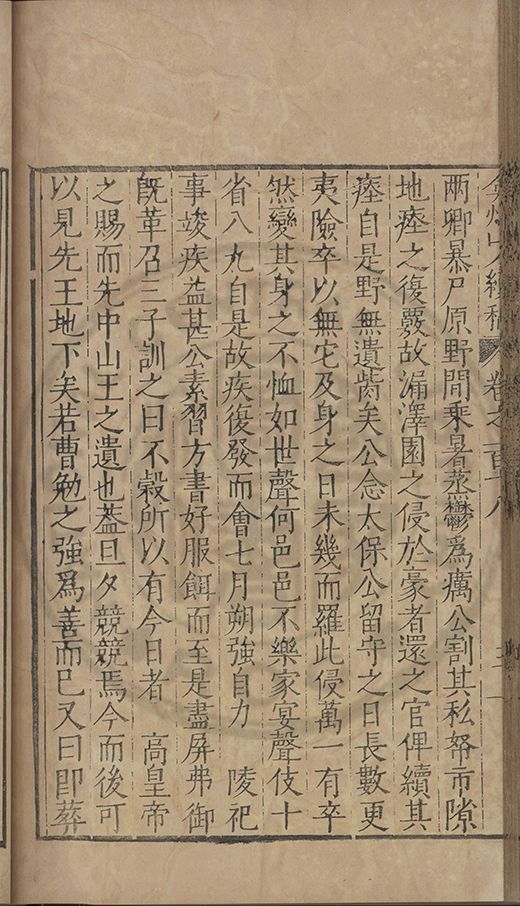 弇州山人續稿 卷之一百十八
兩卿暴尸原野間乗暑蒸鬱為癘公割其私帑市隙
地瘞之復覈故漏澤園之侵於豪者還之官俾續其
瘞自是野無遺胔矣公念太保公留守之日長數更
夷險卒以無它及身之日未幾而羅此侵萬一有卒
然變其身之不恤如世聲何邑邑不樂家宴聲伎十
省八九自是故疾復發而會七月朔強自力 陵祀
事竣疾益甚公素習方書好服餌而至是盡屏弗御
旣革召三子訓之曰不穀所以有今日者 高皇帝
之賜而先中山王之遺也葢旦夕競競焉今而後可
以見先王地下矣若曹勉之強為善而已又曰即葬